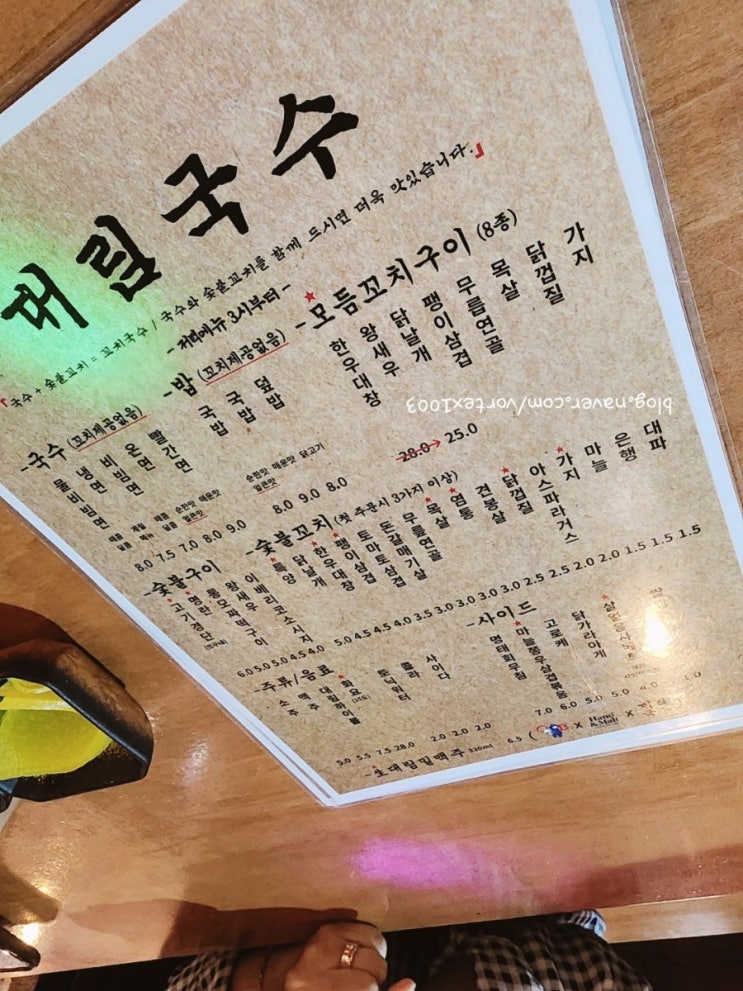 대림국수
『국수 + 숯불꼬치 = 꼬치국수 / 국수와 숯불꼬치를 함께 드시면 더욱 맛있습니다.』
- 저녁메뉴 3시부터 -
-국수 (꼬치제공없음)
물비빔면
냉면
비빔면
온면
빨간면
매콤 달콤
매콤 달콤
순한맛 매운맛
얼큰맛
8.0 7.5 7.0 8.0 9.0
-밥 (꼬치제공없음)
국밥
국밥
덮밥
순한맛 매운맛 닭고기
얼큰맛
8.0 9.0 8.0
-★모듬꼬치구이 (8종)
한우대창
왕새우
닭날개
팽이삼겹
무릎연골
목살
닭껍질
가지
28.0→25.0
-숯불구이
★고기경단
★명란
통모짜떡구이
왕새우
이베리코소시지
6.0 5.0 5.0 4.5 4.0
-숯불꼬치 (첫 주문시 3가지 이상)
★특양
닭날개
★한우대창
★팽이삼겹
토마토삼겹
돈갈매기살
무릎연골
★목살
★염통
견봉살
★닭껍질
아스파라거스
★가지
마늘
은행
대파
5.0 4.5 4.5 4.0 4.0 3.5 3.0 3.0 3.0 3.0 2.5 2.5 2.0 2.0 1.5 1.5 1.5
-주류/음료
소주
맥주
대림하이볼
★화요
토닉워터
콜라
사이다
5.0 5.5 7.5 28.0 2.0 2.0 2.0
-사이드
명태회무침
★마늘쫑우삼겹볶음
고로케
닭가라아게
7.0 6.0 5.0 5.0 4.0 1.0
-초대림밀맥주 330ml 6.5
blog.naver.com/vortex1003